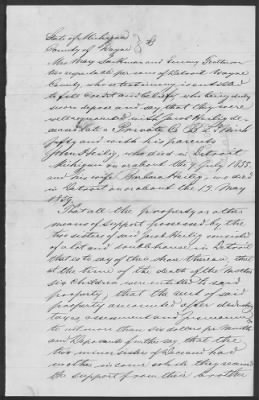 State of Michigan
County of Wayne } ss
Mrs Mary and
two reputable persons of Detroit Wayne
County, whose testimony is entitled
to full credit and belief, who being duly
sworn depose and say that they were
well acquainted with Jacob Heilig de-
ceased late a Private Co
fifty and with his parents
John Heilig, who died in Detroit
Michigan on or about the 9 July 1855.
and his wife Barbara Heilig, who died
in Detroit on or about the 19. May
1859.
That all the property or other
means of support possessed by the
two sisters of said Jacob Heilig consisted
of a lot and small house in Detroit
that is to say of two shares thereon, that
at the time of the death of the Mother
six Children were entitled to said
property, that the rent of said
property amounted after deducting
taxes assessment and Insurance
to not more than six dollars per Month
and Deponents further say that the
two minor sisters of Deceased had
no other income while they received
the support from their brother